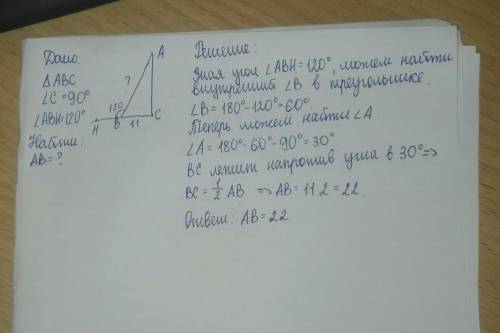 Дано:
△ABC
∠C=90°
∠ABH=120°
Найти:
AB=?
A
?
120
H
B
11
C
Решение:
Зная угол ∠ABH=120°, можем найти
внутренний ∠B в треугольнике.
∠B=180°-120°=60°
Теперь можем найти ∠A.
∠A=180°-60°-90°=30°
BC лежит напротив угла в 30° ⇒
BC=1/2 AB ⇒ AB=11·2=22.
Ответ: AB=22.